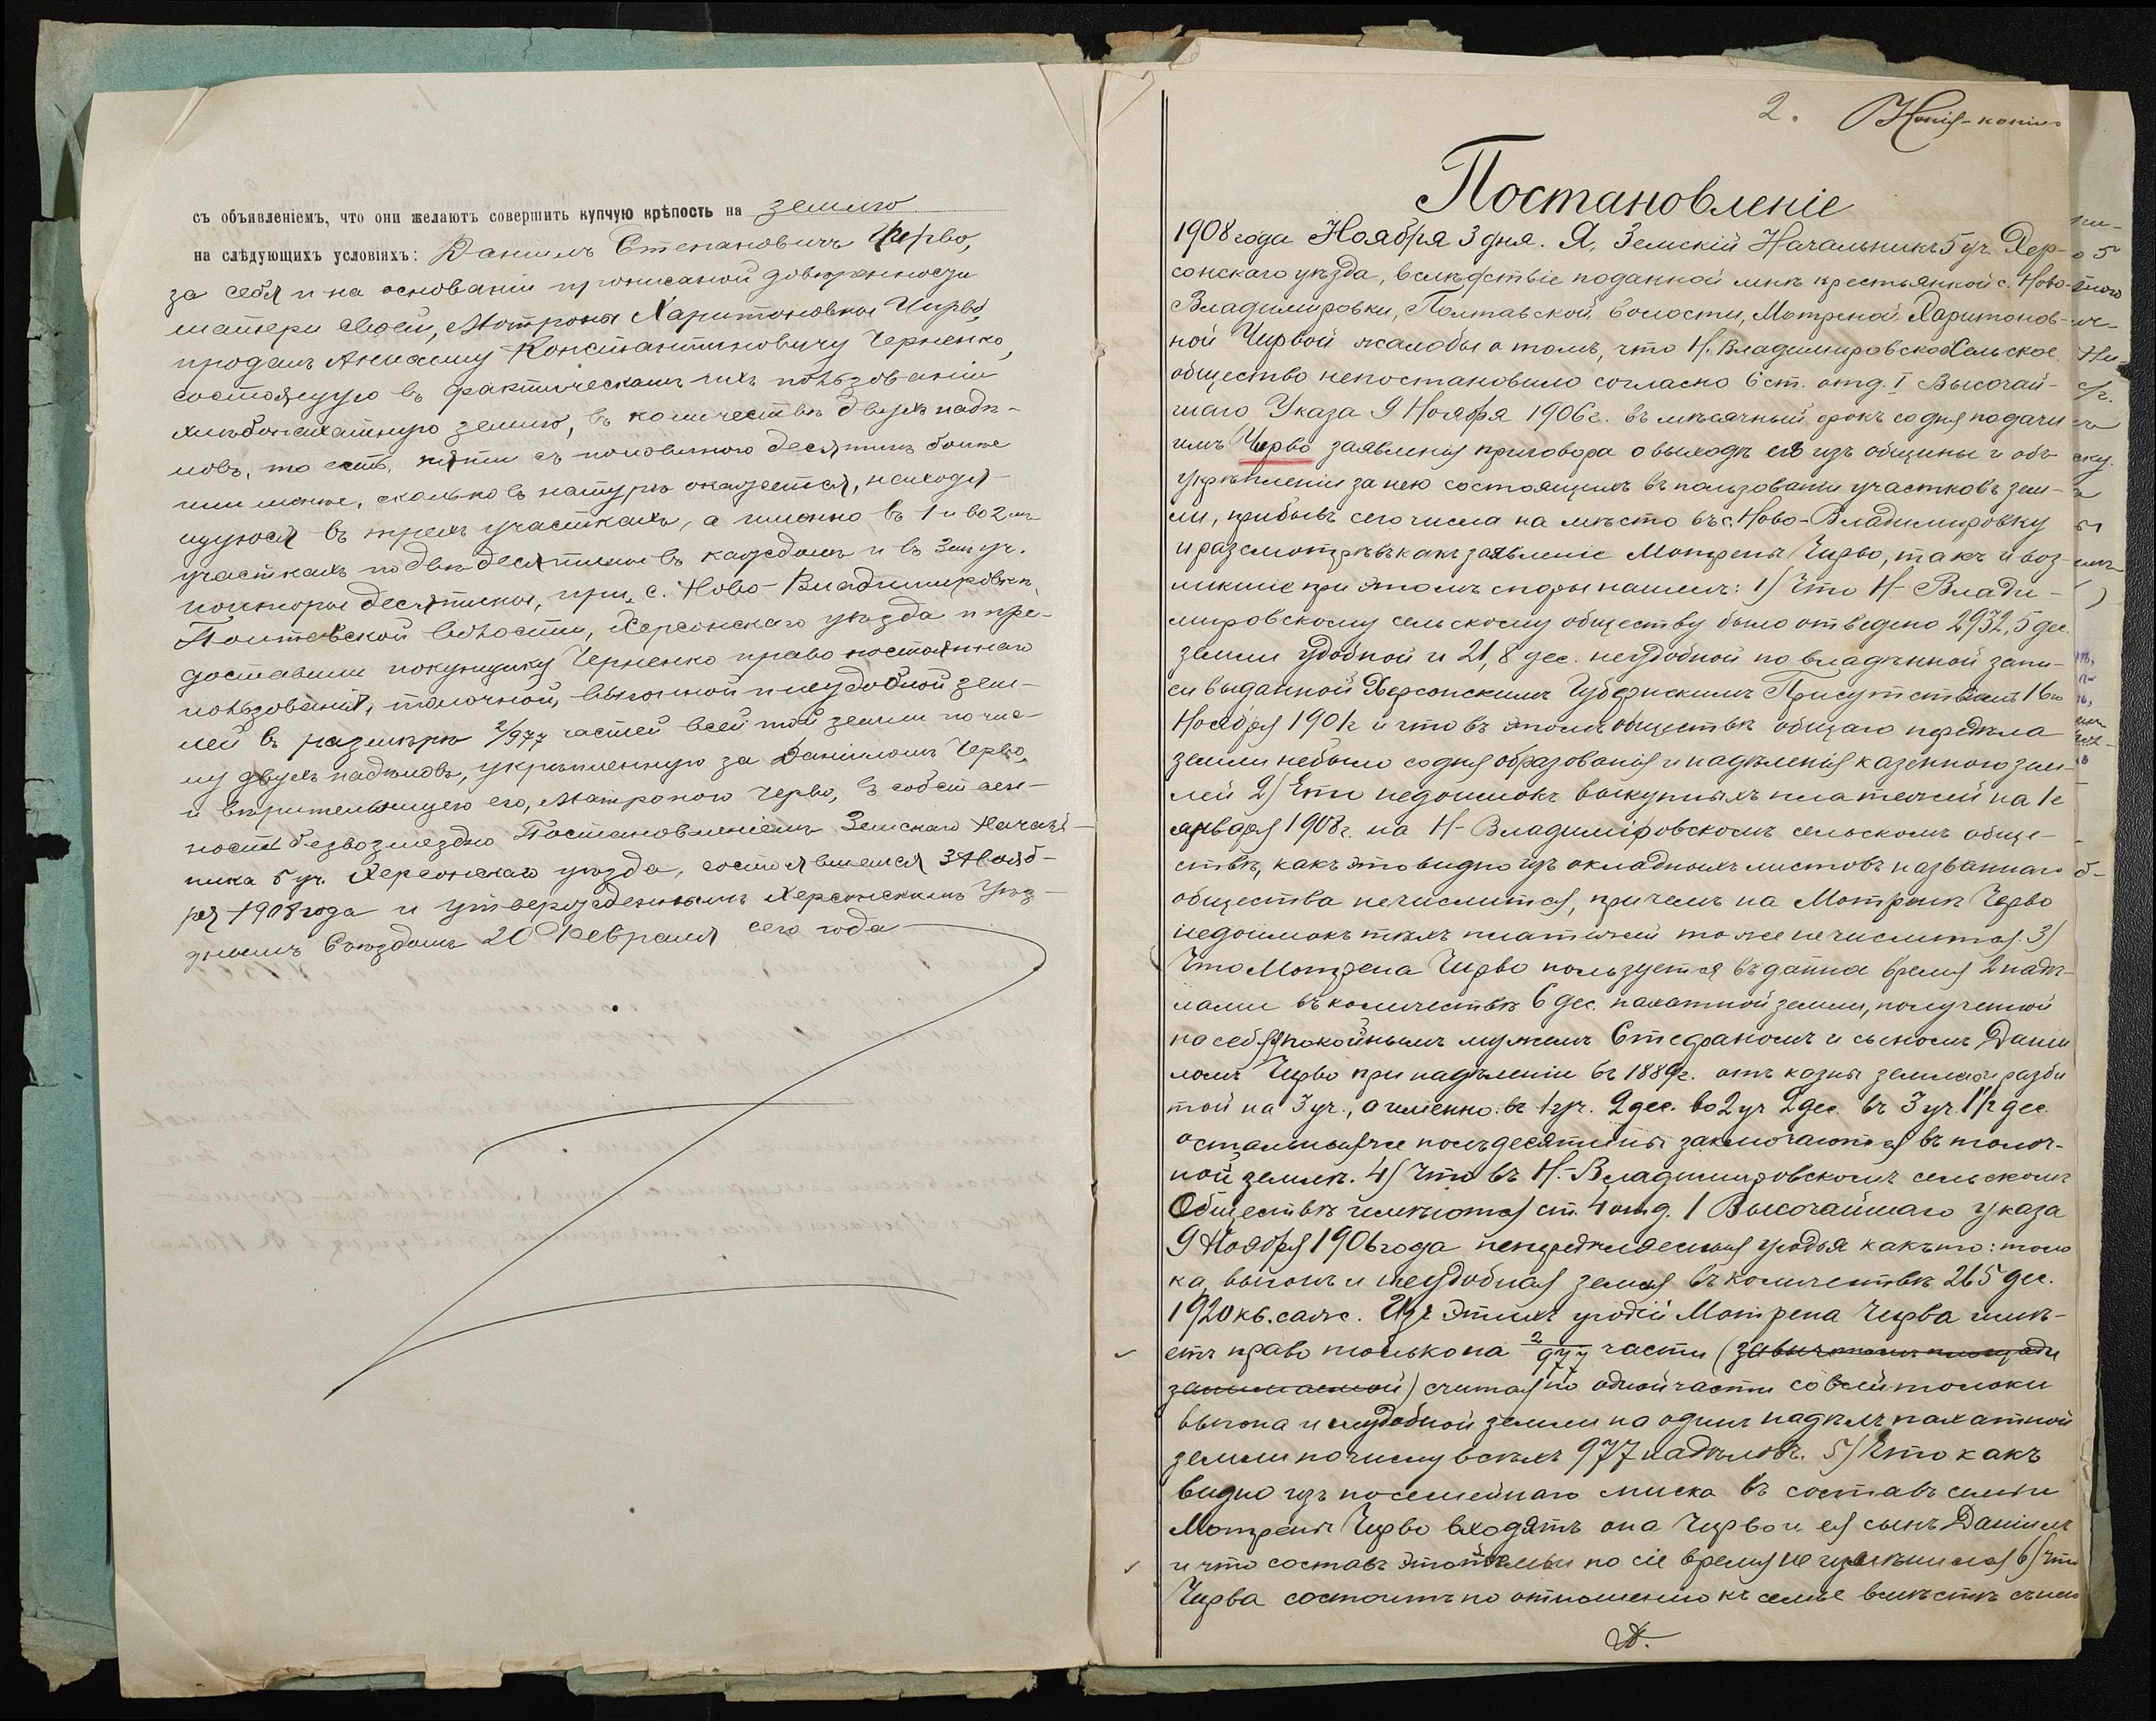 съ объявленіемъ, что они желаютъ совершить купчую крѣпость на землю
на слѣдующихъ условіяхъ: Даніилъ Степановичъ Чирво,
за себя и на основаніи прописаной довѣренности
матери своей, Матроны Харитоновны Чирво,
продалъ Константиновичу Черненко,
состоящую въ фактическомъ ихъ пользованіи
хлѣбопахатную землю, въ количествѣ двухъ надѣ-
ловъ, то есть, пяти съ половиною десятинъ болѣе
или менѣе, сколько въ натурѣ окажется, находя-
щуюся въ трехъ участкахъ, а именно въ 1 и во 2мъ
участкахъ по двѣ десятины въ каждомъ и въ 3мъ уч.
полторы десятины, при с. Ново-Владимировкѣ,
Полтавской волости, Херсонскаго уѣзда и пре-
доставили покупщику Черненко право постояннаго
пользованія, толочной, выгонной и неудобной зем-
лей въ размѣрѣ 2/977 частей всей той земли по чис-
лу двухъ надѣловъ, укрѣпленную за Даніиломъ Черво,
и вѣрительницею его, Матроною Черво, въ собствен-
ность безвозмездно Постановленіемъ Земскаго Началь-
ника 5 уч. Херсонскаго уѣзда, состоявшемся 3 Нояб-
ря 1908 года и утвержденнымъ Херсонскимъ Уѣзд-
нымъ Съѣздомъ 20 Февраля сего года
2. Копія-копіи
Постановленіе
1908 года Ноября 3 дня. Я, Земскій Начальникъ 5 уч. Хер-
сонскаго уѣзда, вслѣдствіе поданной мнѣ крестьянкой с. Ново-
Владимировки, Полтавской волости, Мотреной Харитонов-
ной Чирвой жалобы о томъ, что Н. Владимировское сельское
общество непостановило согласно 6 ст. отд. I Высочай-
шаго Указа 9 Ноября 1906 г. въ мѣсячный срокъ со дня подачи
имъ Чирво заявленія приговора о выходѣ ея изъ общины и объ
укрѣпленіи за нею состоящихъ въ пользованіи участковъ зем-
ли, прибывъ сего числа на мѣсто въ с. Ново-Владимировку
и разсмотрѣвъ какъ заявленіе Мотрены Чирво, такъ и воз-
никшіе при этомъ споры нашелъ: 1) Что Н-Влади-
мировскому сельскому обществу было отведено 2932,5 дес.
земли удобной и 21,8 дес. неудобной по владѣнной запи-
си выданной Херсонскимъ Губернскимъ Присутствіемъ 16го
Ноября 1901г и что въ этомъ обществѣ общаго передѣла
земли небыло со дня образованія и надѣленія казенною зем-
лей 2) Что недоимокъ выкупныхъ платежей на 1е
января 1908 г. на Н-Владимировскомъ сельскомъ обще-
ствѣ, какъ это видно изъ окладныхъ листовъ названнаго
общества нечислится, причемъ на Мотренѣ Черво
недоимокъ тѣхъ платежей тоже нечислится. 3)
Что Мотрена Чирво пользуется въ данное время 2 надѣ-
лами въ количествѣ 6 дес. пахатной земли, полученной
на себя покойнымъ мужемъ Стефаномъ и сыномъ Даніи
ломъ Чирво при надѣленіи въ 1889г. отъ казны землей разби
той на 3 уч., а именно: въ 1 уч. 2 дес. во 2 уч 2 дес. въ 3 уч. 1 1/2 дес.
остальныя же полъдесятины заключаются въ толоч-
ной землѣ. 4) Что въ Н.-Владимировскомъ сельскомъ
Обществѣ имѣются ст. 4 отд. 1 Высочайшаго указа
9 Ноября 1906 года непередѣляемыя угодья какъ то: толо
ка, выгонъ и неудобная земля въ количествѣ 265 дес.
1920 кв. саж. Изъ этихъ угодій Мотрена Чирва имѣ-
етъ право только на 2/977 части (за вычетомъ площади
занимаемой) считая по одной части со всей толоки
выгона и неудобной земли на одинъ надѣлъ пахатной
земли по числу всѣхъ 977 надѣловъ. 5) Что какъ
видно изъ посемейнаго списка въ составъ семьи
Мотрены Чирво входятъ она Чирво и ея сынъ Даніилъ
и что составъ этой семьи по сіе время не измѣнился 6) Что
Чирва состоитъ по отношенію къ семье вмѣстѣ съ нею